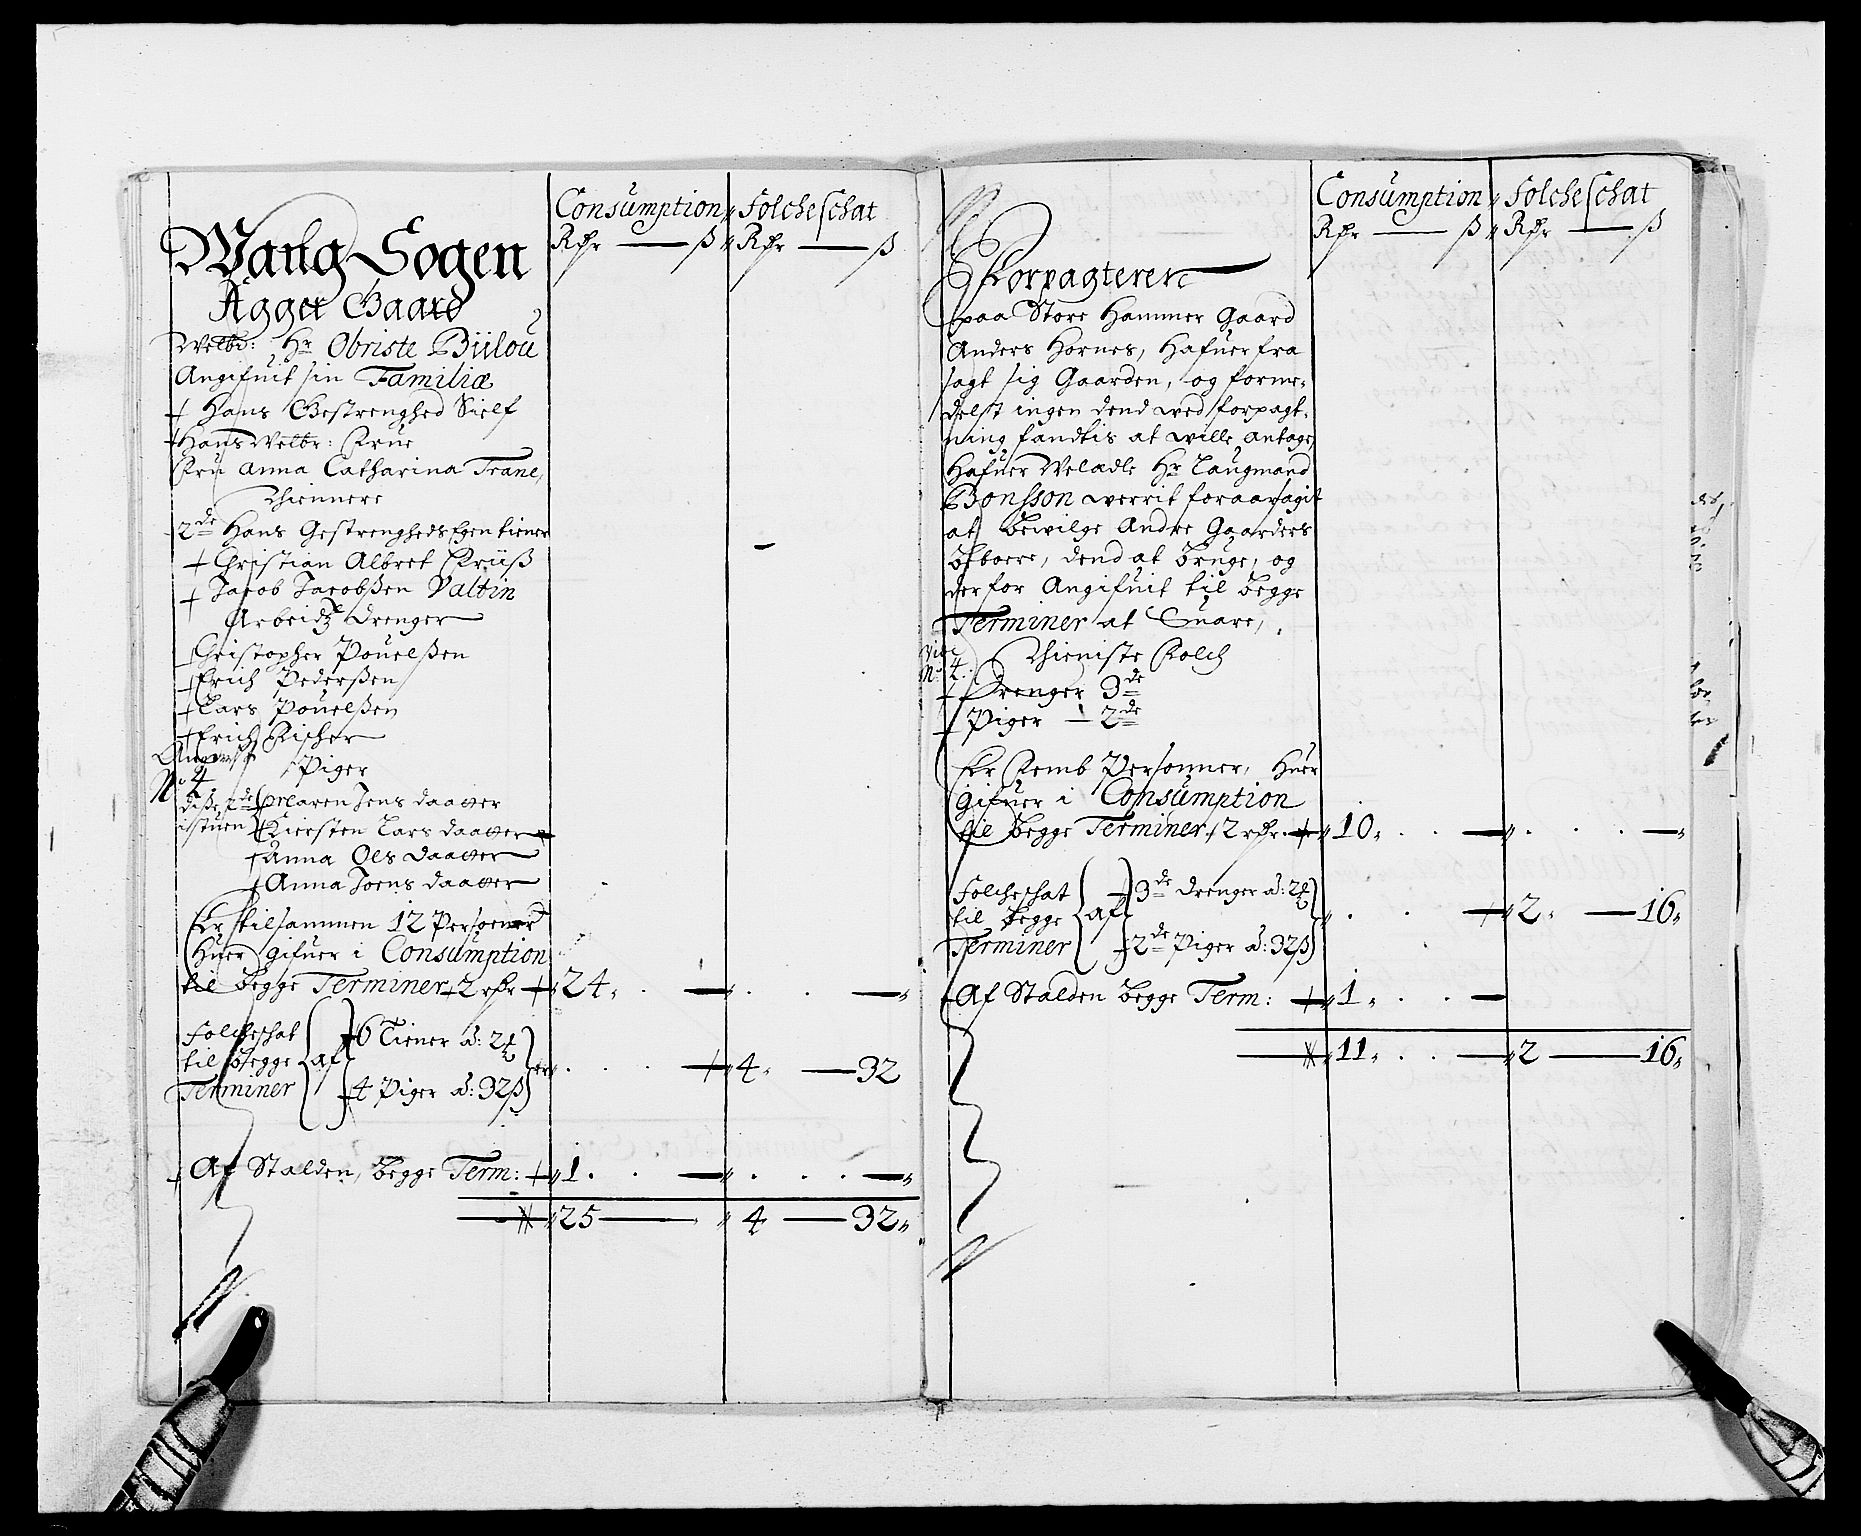 Consumption Folcheschat
Rdr ß Rdr ß
Wang Sogen
Agger Gaard
Welbr: Hr Obriste Büilou
Angifuit sin Familiæ
+ Hans Gestrenghed Sielf
+ Hans Welbr: Frue
Fru Anna Catharina Trane,
Thiennere
2de Hans Gestrengheds Egen tiener
+ Christian Albret Krüiß
+ Jacob Jacobßen Valtin
Arbeidtz Drenger
Christopher Pouelßen
+ Erich Pederßen
+ Lars Pouelßen
+ Erich Fischer
No 4
Piger
diße 2de Karen Jens daatter
i stuen Kiersten Lars daatter
+ Anna Ols daatter
+ Anna Joens daatter
Er tilsammen 12 Personer
Huer gifuer i Consumption
til begge Terminer 2 rdr + 24
Folcheschat
til begge af
Terminer
+ 6 Tiener à: 2
+ 4 Piger à: 32ß
+ 4 32
+ Af Stalden, begge Term: + 1
25 4 32
Consumption Folcheschat
Rdr ß Rdr ß
Forpagteren
paa Store Hammer Gaard
Anders Hornes, Hafuer fra
sagt sig Gaarden, og forme-
delst ingen dend wed forpagt-
ning fandtis at wille antage,
Hafuer Welædle Hr Laugmand
Bonsson werrit foraarsagit
at bewilge Andre Gaarders
Beboere, dend at bruge, og
derfor Angifuit til begge
Terminer at Suare,
Vide
No 4
Thieniste Folch
+ Drenger 3de
+ Piger 2de
Er Femb Personner, Huer
gifuer i Consumption
til begge Terminer 2 rdr + 10
Folcheschat
til begge af
Terminer
+ 3de Drenger à: 2
+ 2de Piger à: 32ß
+ 2 16
Af Stalden begge Term: + 1
11 2 16